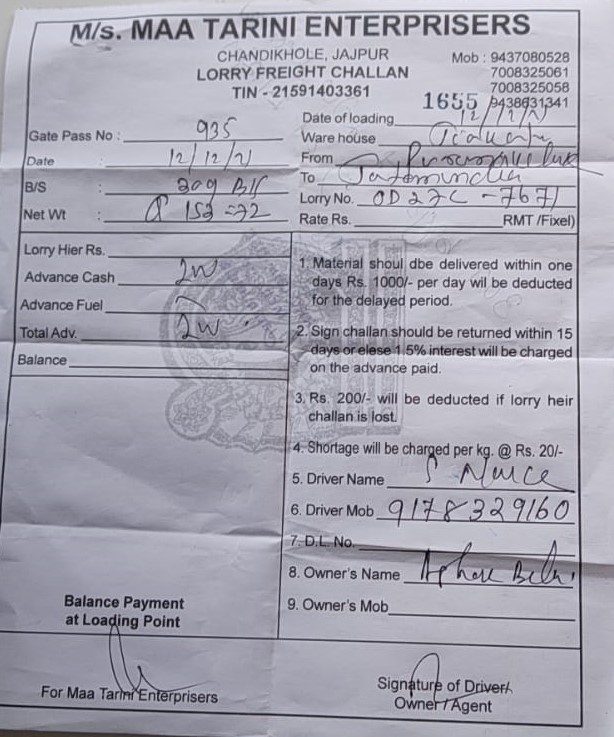 M/s. MAA TARINI ENTERPRISERS
CHANDIKHOLE, JAJPUR
LORRY FREIGHT CHALLAN
TIN - 21591403361
Mob : 9437080528
7008325061
7008325058
9438631341
1655
Gate Pass No : 935
Date : 12/12/21
B/S :
Net Wt :
Date of loading 12/12/21
Ware house
From
To
Lorry No. OD27C-7671
Rate Rs. RMT /Fixel)
Lorry Hier Rs.
Advance Cash
Advance Fuel
Total Adv.
Balance
1. Material shoul dbe delivered within one
days Rs. 1000/- per day wil be deducted
for the delayed period.
2. Sign challan should be returned within 15
days or elese 1.5% interest will be charged
on the advance paid.
3. Rs. 200/- will be deducted if lorry heir
challan is lost.
4. Shortage will be charged per kg. @ Rs. 20/-
5. Driver Name
6. Driver Mob 9178329160
7. D.L. No.
8. Owner's Name
9. Owner's Mob
Balance Payment
at Loading Point
For Maa Tarini Enterprisers
Signature of Driver/
Owner / Agent